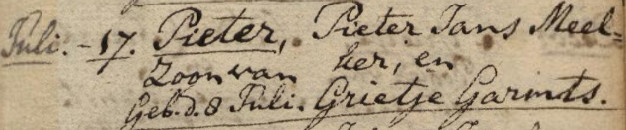 Juli. - 17. Pieter, Pieter Jans Meel=
Zoon van ker, en
Geb. d. 8 Juli. Grietje Garmts.